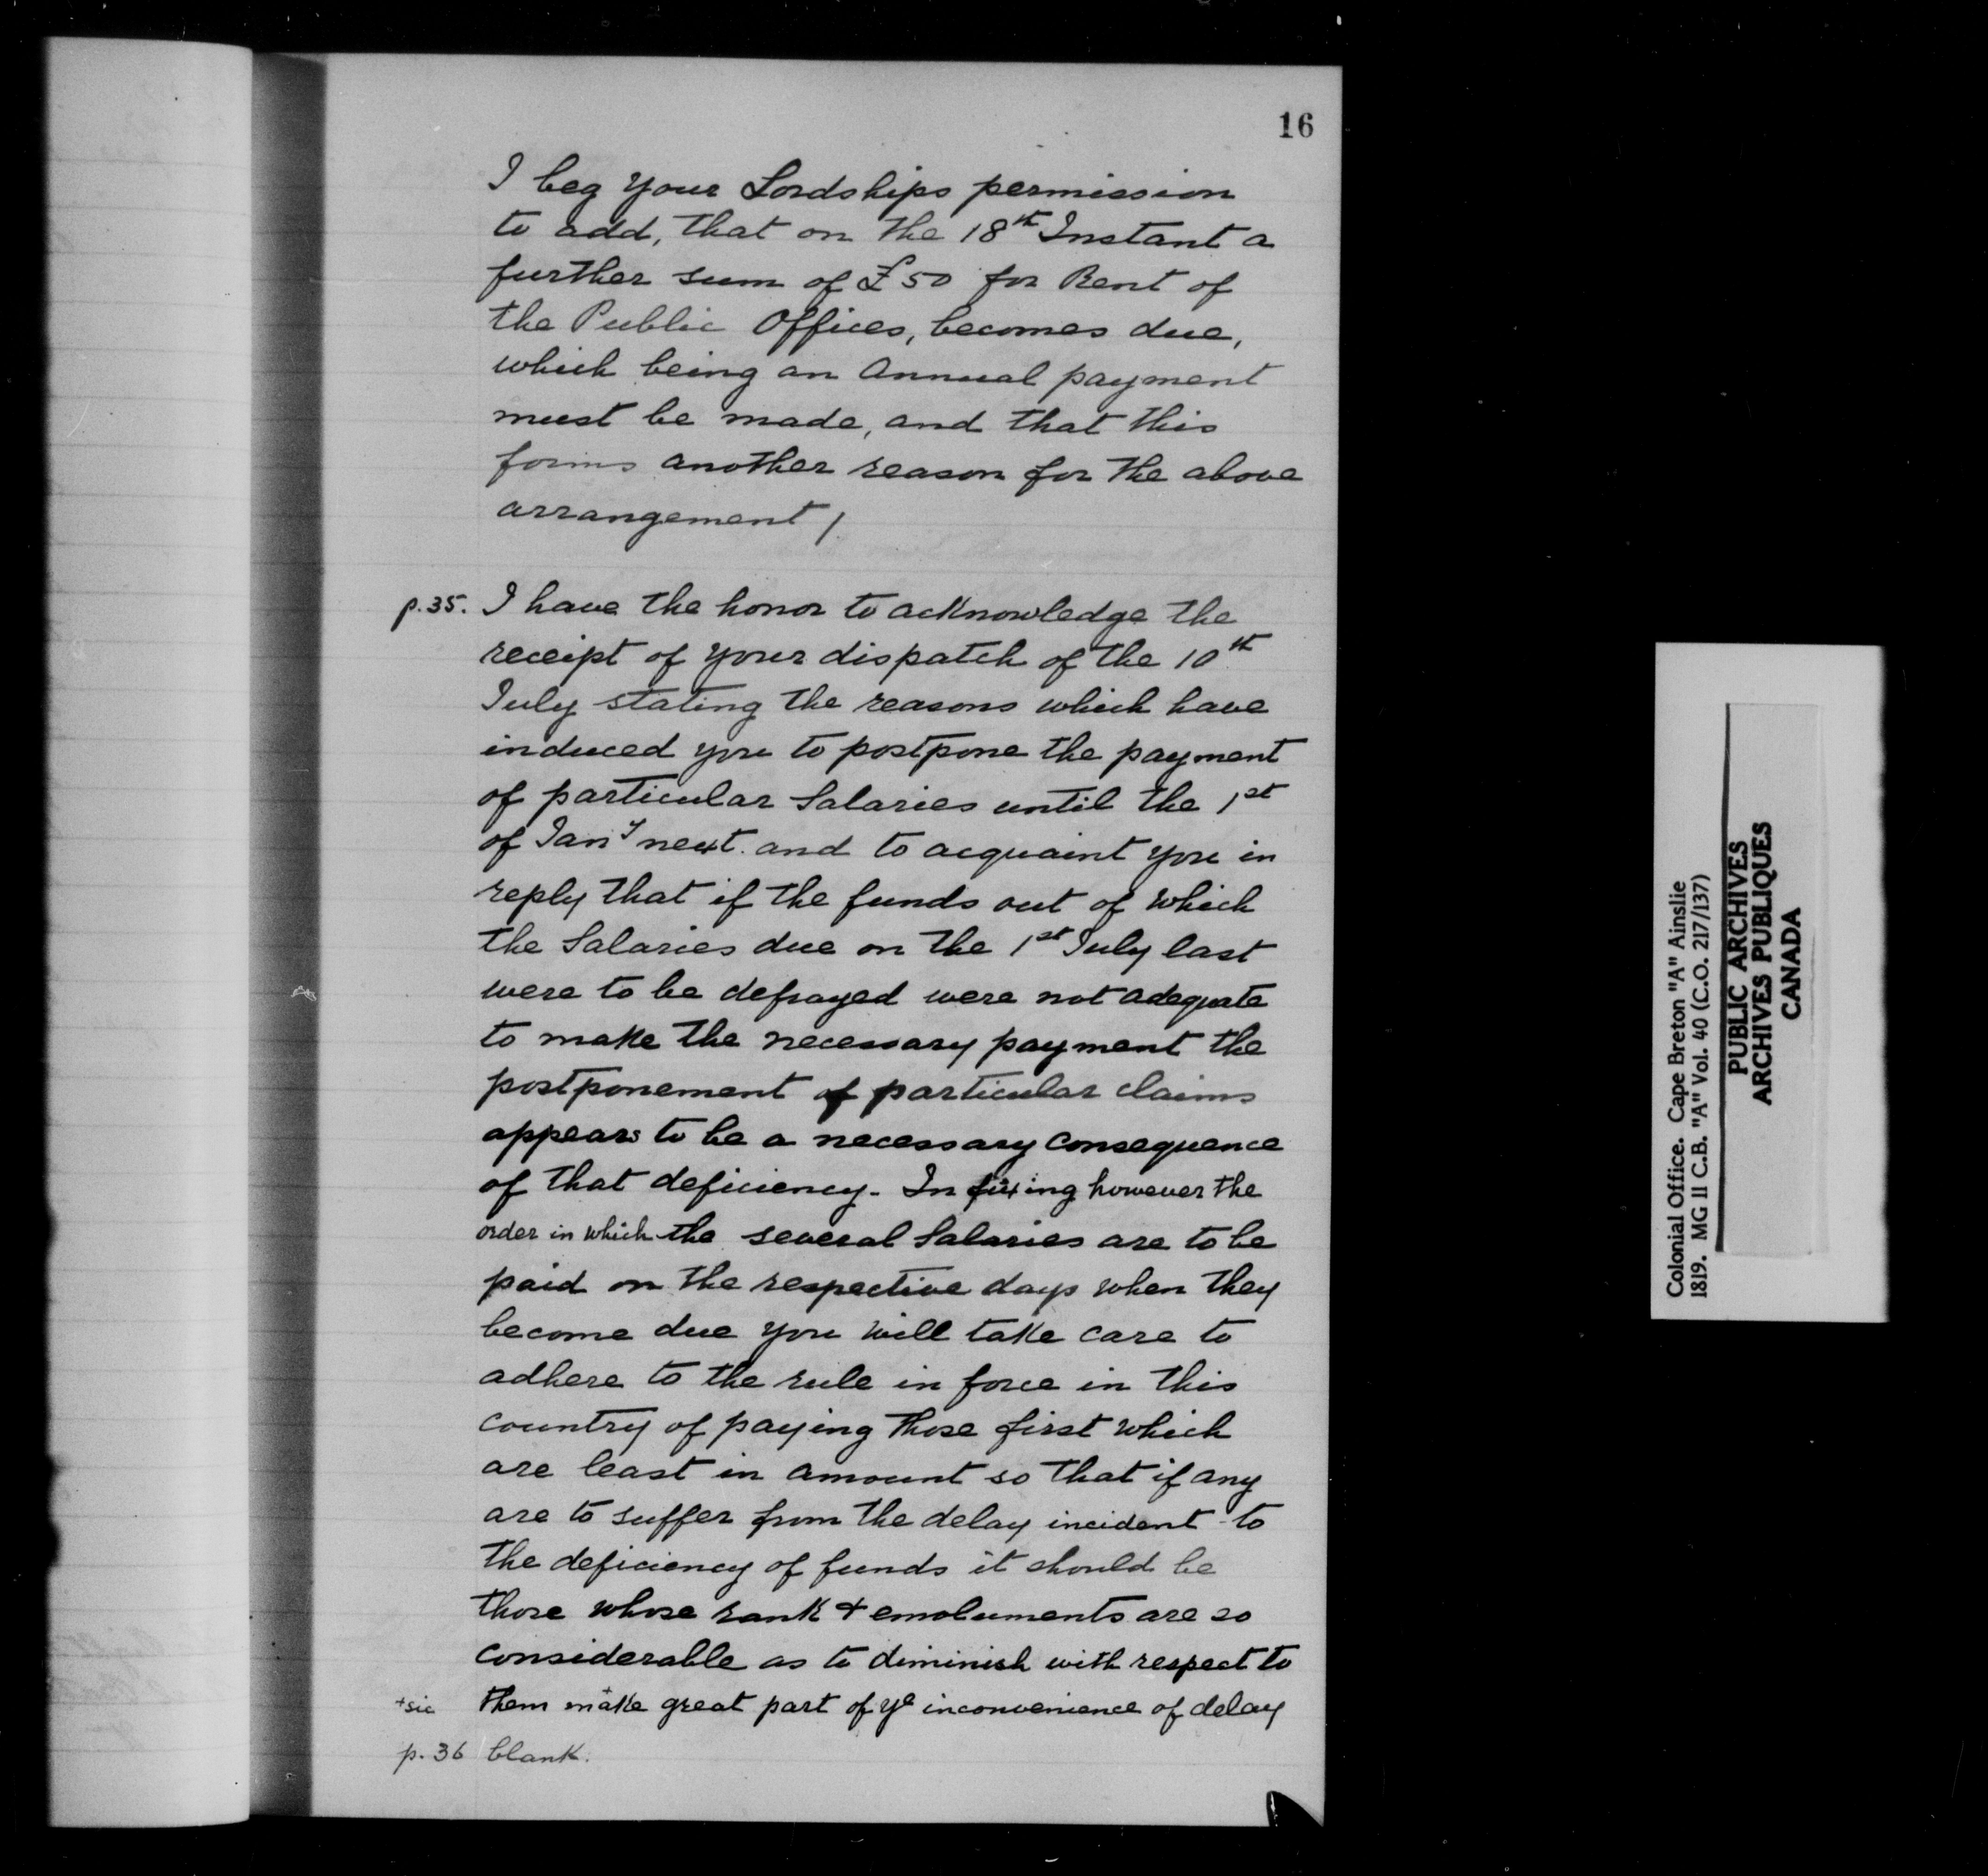 16
I beg your Lordships permission
to add, that on the 18th Instant a
further sum of £50 for Rent of
the Public Offices, becomes due,
which being an Annual payment
must be made, and that this
forms another reason for the above
arrangement /.
p. 35. I have the honor to acknowledge the
receipt of your dispatch of the 10th
July stating the reasons which have
induced you to postpone the payment
of particular Salaries until the 1st
of Jany next. and to acquaint you in
reply that if the funds out of which
the Salaries due on the 1st July last
were to be defrayed were not adequate
to make the necessary payment the
postponement of particular claims
appears to be a necessary consequence
of that deficiency. In fixing however the
order in which the several Salaries are to be
paid on the respective days when they
become due you will take care to
adhere to the rule in force in this
country of paying those first which
are least in amount so that if any
are to suffer from the delay incident to
the deficiency of funds it should be
those whose rank & emoluments are so
considerable as to diminish with respect to
+sic them make+ great part of ye inconvenience of delay
p. 36 blank.
Colonial Office. Cape Breton "A" Ainslie
1819. MG 11 C.B. "A" Vol. 40 (C.O. 217/137)
PUBLIC ARCHIVES
ARCHIVES PUBLIQUES
CANADA